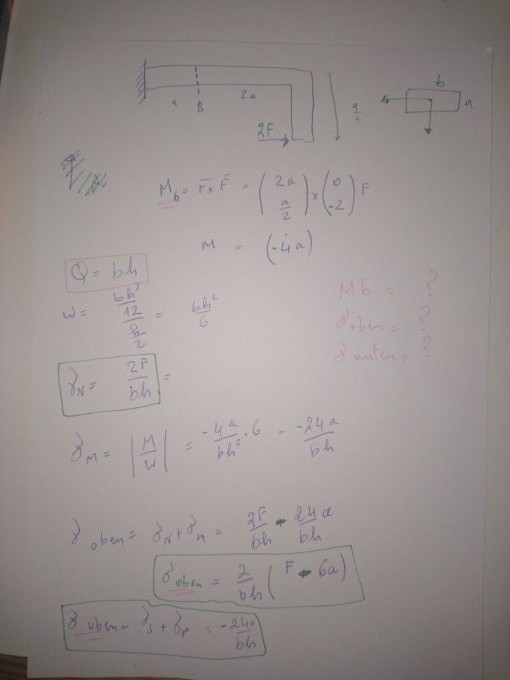 b
a
a B 2a
a/2
2F
M_b = r̄ x F̄ = (2a a/2) x (0 -2) F
M = (-4a)
Q = bh
W = (bh³/12)/(h/2) = bh²/6
Mb = ?
σ_oben = ?
σ_unten = ?
σ_N = 2F/bh =
σ_M = |M/W| = -4a/bh² · 6 = -24a/bh
σ_oben = σ_N + σ_M = 2F/bh - 24a/bh
σ_oben = 2/bh (F - 6a)
= -24a/bh